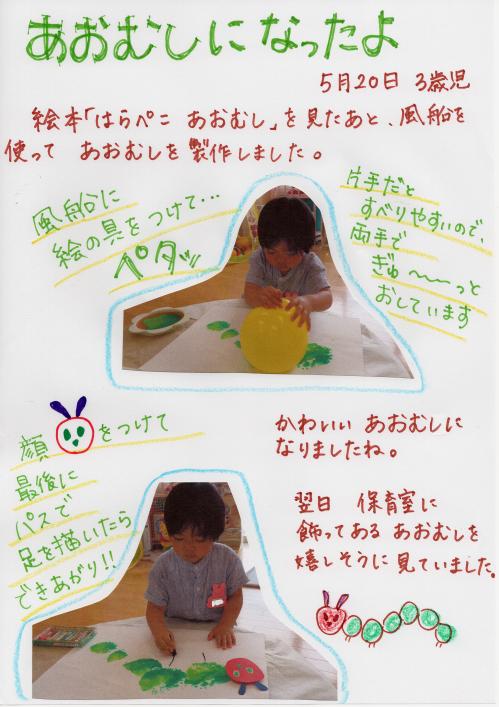 あおむしになったよ
5月20日 3歳児
絵本「はらぺこ あおむし」を見たあと、風船を
使って あおむしを製作しました。
風船に
絵の具をつけて…
ペタッ
片手だと
すべりやすいので、
両手で
ぎゅ〜〜っと
おしています
顔をつけて
最後に
パスで
足を描いたら
できあがり!!
かわいい あおむしに
なりましたね。
翌日 保育室に
飾ってある あおむしを
嬉しそうに見ていました。